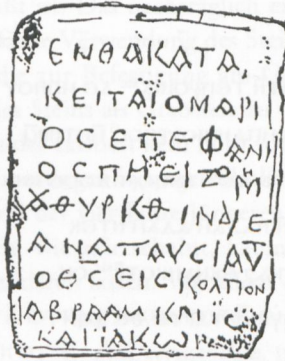 ΕΝΘΑΚΑΤΑ
ΚΕΙΤΑΙΟΜΑΡΙ
ΟΣΕΠΕΦΑΝΙ
ΟΣΠΗΕΙΖΟΗ
ΧΘΥΡΙΚΘΙΝΔΙΕ
ΑΝΑΠΑΥΣΙΑΥ
ΟΘΣΕΙΣΚΟΛΠΟΝ
ΑΒΡΑΑΜΚΑΙΙΣ
ΚΑΙΙΑΚΩ